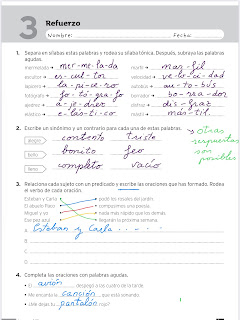 3 Refuerzo
Nombre: Fecha:
1. Separa en sílabas estas palabras y rodea su sílaba tónica. Después, subraya las palabras
agudas.
mermelada ▸ mer-me-la-da marfil ▸ mar-fil
escultor ▸ es-cul-tor velocidad ▸ ve-lo-ci-dad
lapicero ▸ la-pi-ce-ro autobús ▸ au-to-bús
fotógrafo ▸ fo-tó-gra-fo borrador ▸ bo-rra-dor
ajedrez ▸ a-je-drez disfraz ▸ dis-fraz
elástico ▸ e-lás-ti-co mástil ▸ más-til
2. Escribe un sinónimo y un contrario para cada una de estas palabras.
alegre contento triste
bello bonito feo
lleno completo vacío
otras
respuestas
son
posibles
3. Relaciona cada sujeto con un predicado y escribe las oraciones que has formado. Rodea
el verbo de cada oración.
Esteban y Carla podó los rosales del jardín.
El abuelo Paco compusimos una poesía.
Miguel y yo nada más rápido que los demás.
Ese pez azul llegarán la próxima semana.
A Esteban y Carla .....
B
C
D
4. Completa las oraciones con palabras agudas.
El avión despegó a las cuatro de la tarde.
Me encanta la canción que está sonando.
¿Me dejas tu pantalón rojo?